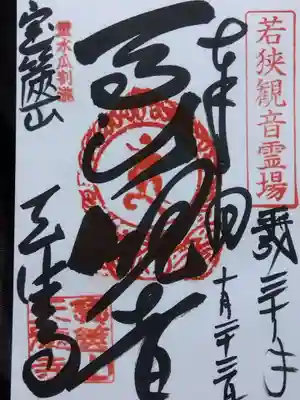 若狭観音霊場
平成三十年
奉拝
十月二十三日
馬頭観音
霊水瓜割滝
宝篋山
天徳寺